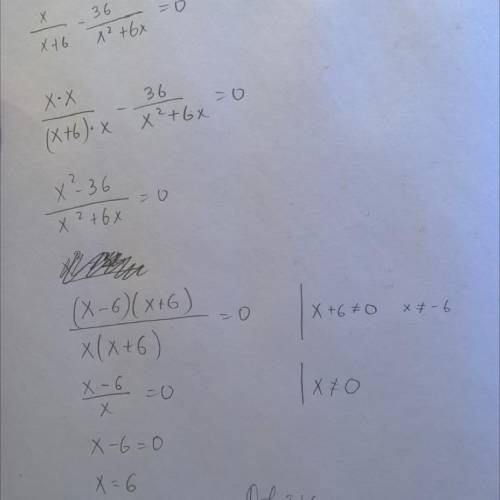 x/(x+6) - 36/(x²+6x) = 0
x·x/((x+6)·x) - 36/(x²+6x) = 0
(x²-36)/(x²+6x) = 0
(x-6)(x+6)/(x(x+6)) = 0 | x+6≠0 x≠-6
(x-6)/x = 0 | x≠0
x-6=0
x=6